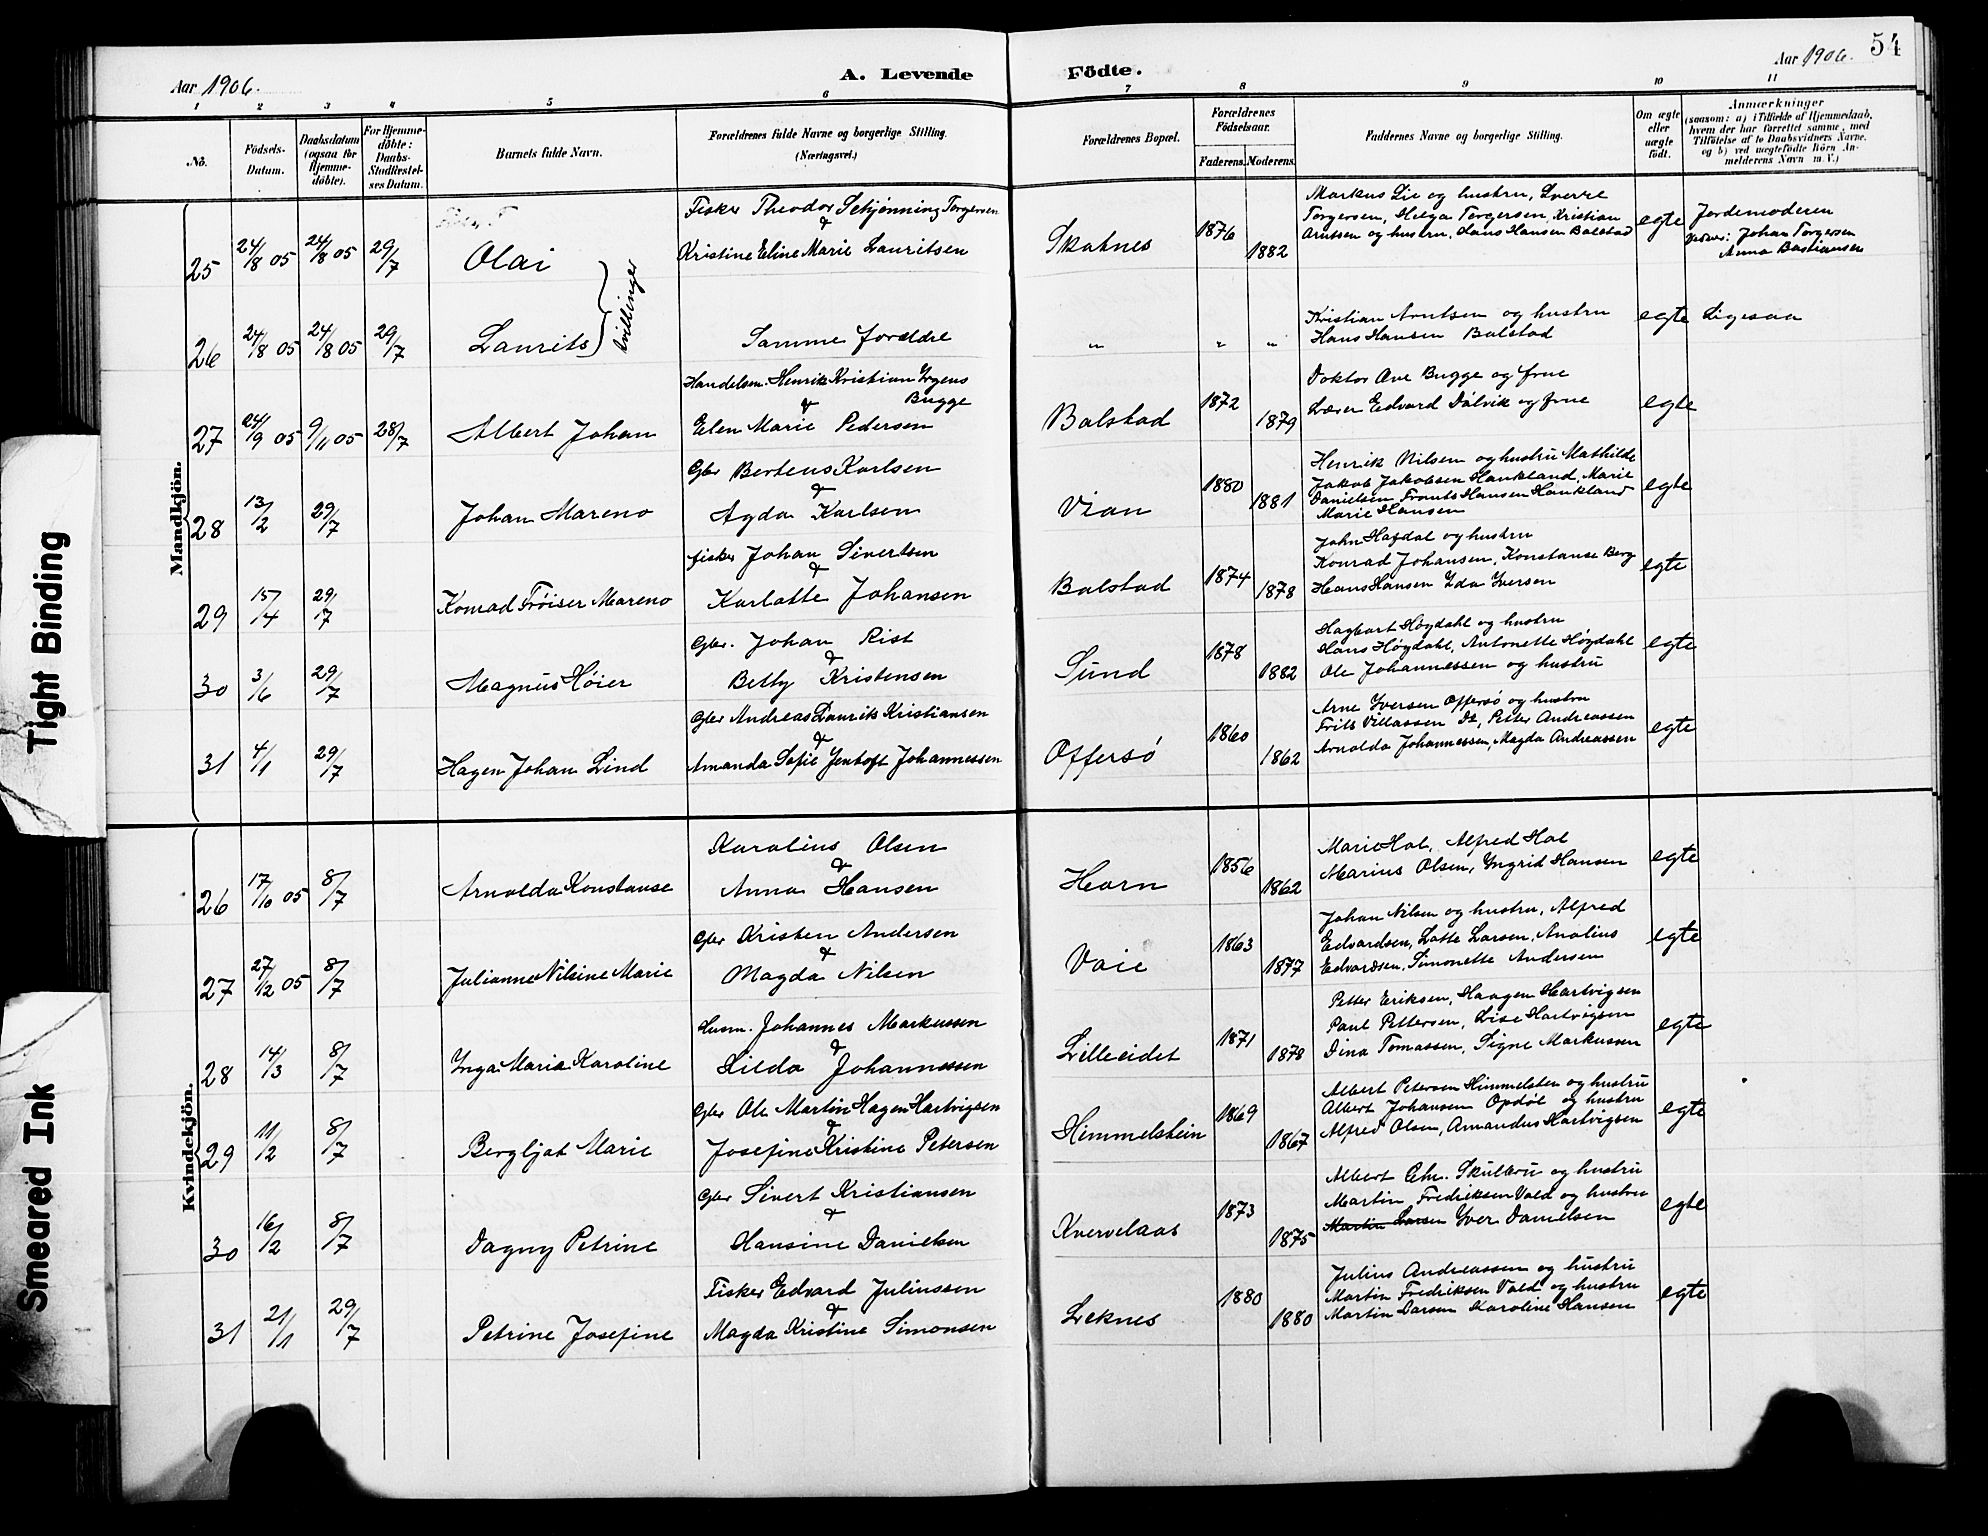 54
Aar 1906.
A. Levende
Födte.
Aar 1906.
1 2 3 4 5 6 7 8 9 10 11
No.
Födsels-
Datum.
Daabsdatum
(ogsaa for
Hjemme-
döbte).
For Hjemme-
döbte:
Daabs-
Stadfæstel-
ses Datum.
Barnets fulde Navn.
Forældrenes fulde Navne og borgerlige Stilling.
(Næringsvei.)
Forældrenes Bopæl.
Forældrenes
Födselsaar.
Faderens. Moderens.
Faddernes Navne og borgerlige Stilling.
Om ægte
eller
uægte
födt.
Anmærkninger
(saasom: a) i Tilfælde af Hjemmedaab,
hvem der har forrettet samme, med
Tilföielse af to Daabsvidners Navne,
og b) ved uægtefödte Börn An-
melderens Navn m. V.)
Mandkjön.
25 24/8 05 24/8 05 29/7 Olai
Fisker Theodor Schjønning Torgersen
&
Kristine Eline Marie Lauritsen
Skaknes 1876 1882
Markus Lie og hustru, Sverre
Torgersen, Helga Torgersen, Kristian
Arntsen og hustru, Hans Hansen Balstad
egte
Jordemoderen
Vidner: Johan Torgersen
Anna Bastiansen
tvillinger
26 24/8 05 24/8 05 29/7 Laurits
Samme forældre
" " "
Kristian Arntsen og hustru
Hans Hansen Balstad
egte Ligesaa
27 24/9 05 9/11 05 28/7 Albert Johan
Handelsm. Henrik Kristian Irgens
Bugge
&
Elen Marie Pedersen
Balstad 1872 1879
Doktor Ave Bugge og frue
Lærer Edvard Dalvik og frue
egte
28 13/2 29/7 Johan Mareno
Gbr Berteus Karlsen
&
Agda Karlsen
Vian 1880 1881
Henrik Nilsen og hustru Mathilde
Jakob Jakobsen Haukland, Marie
Danielsen Frants Hansen Haukland
Marie Hansen
egte
29 15/4 29/7 Konrad Frøiser Mareno
fisker Johan Sivertsen
&
Karlotte Johansen
Balstad 1874 1878
John Hagdal og hustru
Konrad Johansen, Konstanse Berg
Hans Hansen Ida Iversen
egte
30 3/6 29/7 Magnus Høier
Gbr. Johan Rist
&
Betty Kristensen
Sund 1878 1882
Hagbart Høgdahl og hustru
Hans Høgdahl, Antonette Høgdahl
Ole Johannessen og hustru
egte
31 4/1 29/7 Hagen Johan Lind
Gbr Andreas Laurits Kristiansen
&
Amanda Sofie Jentoft Johannessen
Offersø 1860 1862
Arne Iversen Offersø og hustru
Frits Villassen Do, Peter Andreassen
Arnolda Johannessen, Magda Andreassen
egte
Kvindekjön.
26 17/10 05 8/7 Arnolda Konstanse
Karolius Olsen
&
Anna Hansen
Horn 1856 1862
Marie Hol, Alfred Hol
Marius Olsen, Yngrid Hansen
egte
27 27/12 05 8/7 Julianne Nilsine Marie
Gbr Kristen Andersen
&
Magda Nilsen
Voie 1863 1877
Johan Nilsen og hustru, Alfred
Edvardsen, Lotte Larsen, Anolius
Edvardsen, Simonette Andersen
egte
28 14/3 8/7 Ynga Maria Karoline
Husm. Johannes Markussen
&
Hilda Johannessen
Lilleeidet 1871 1878
Petter Eriksen, Haagen Hartvigsen
Paul Pettersen, Lise Hartvigsen
Dina Tomassen, Signe Markussen
egte
29 11/2 8/7 Bergljot Marie
Gbr Ole Martin Hagen Hartvigsen
&
Josefine Kristine Petersen
Himmelstein 1869 1867
Albert Petersen Himmelsten og hustru
Albert Johansen Opdøl og hustru
Alfred Olsen, Amandus Hartvigsen
egte
30 16/2 8/7 Dagny Petrine
Gbr Sivert Kristiansen
&
Hansine Danielsen
Kvervelaas 1873 1875
Albert Chr. Skulbru og hustru
Martin Fredriksen Vold og hustru
Martin Larsen Iver Danielsen
egte
31 21/11 29/7 Petrine Josefine
Fisker Edvard Juliussen
&
Magda Kristine Simonsen
Leknes 1880 1880
Julius Andreassen og hustru
Martin Fredriksen Vold og hustru
Martin Larsen Karoline Hansen
egte
Tight Binding
Smeared Ink